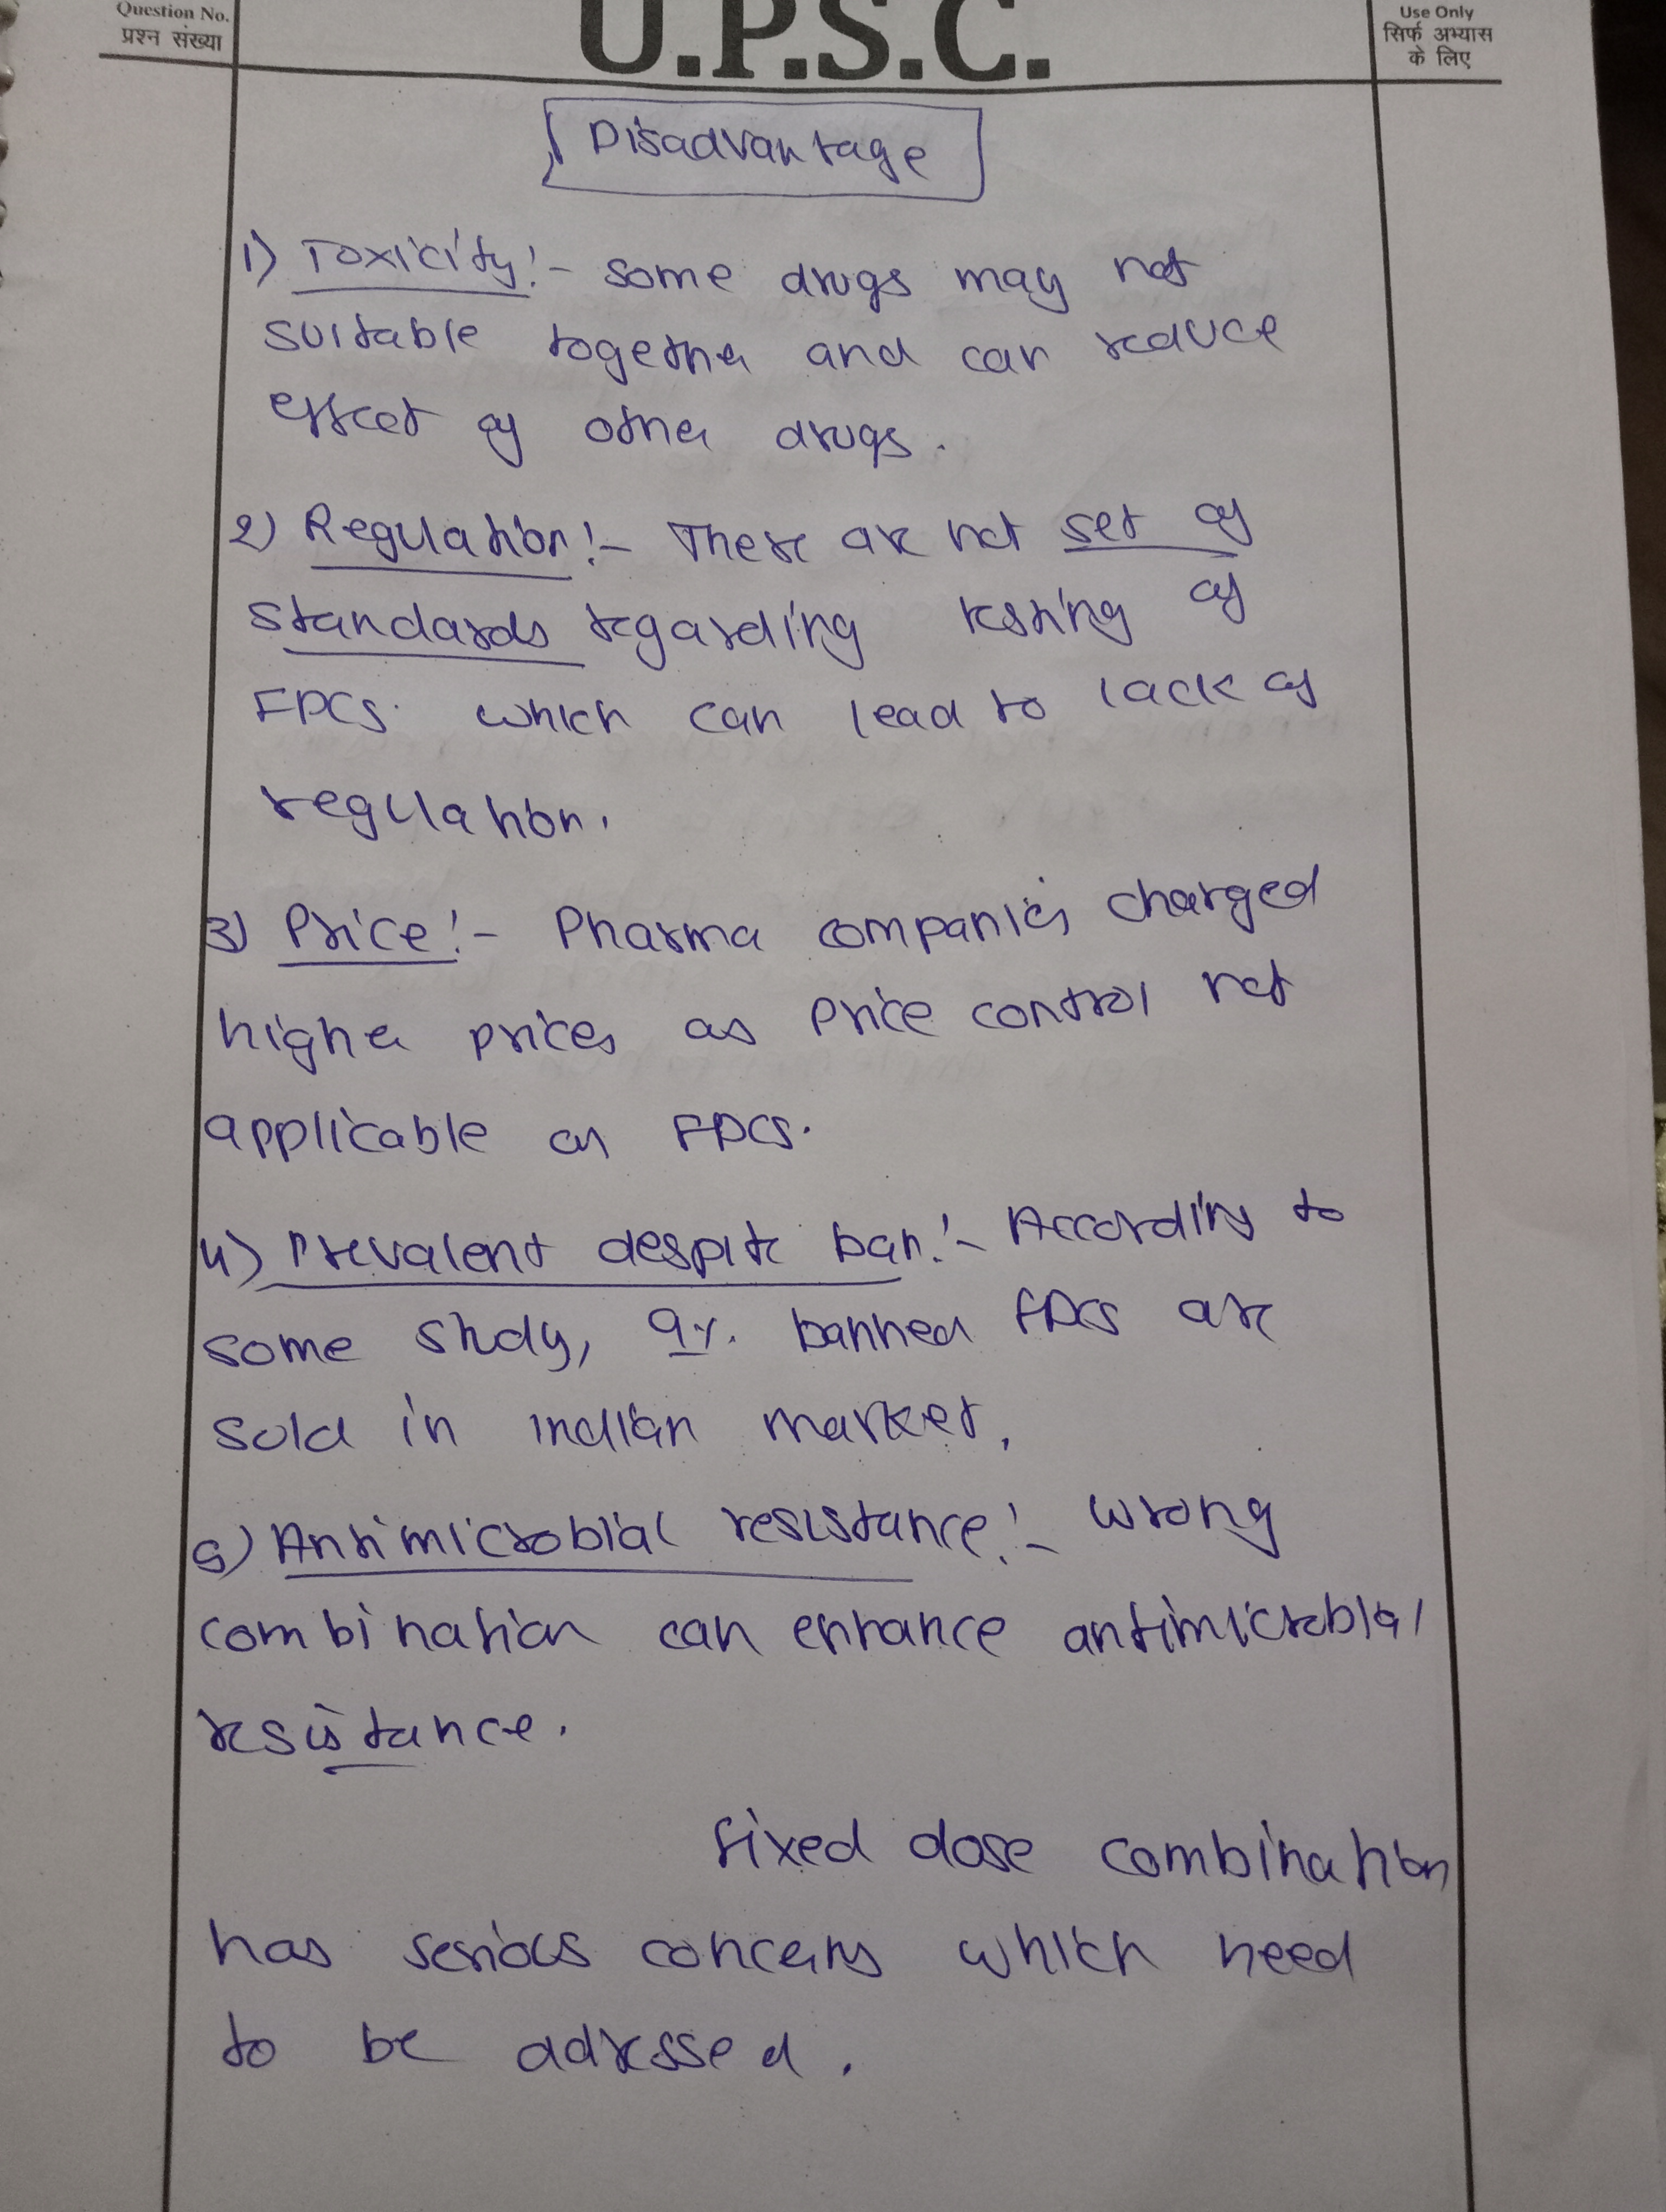 Question No.
प्रश्न संख्या
U.P.S.C.
Use Only
सिर्फ अभ्यास
के लिए
Disadvantage
1) Toxicity:- some drugs may not
suitable together and can reduce
effect of other drugs.
2) Regulation:- There are not set of
standards regarding testing of
FDCs. which can lead to lack of
regulation.
3) Price:- Pharma companies charged
higher prices as price control not
applicable on FDCs.
4) Prevalent despite ban:- According to
some study, 9%. banned FDCs are
sold in indian market.
5) Antimicrobial resistance:- wrong
combination can enhance antimicrobial
resistance.
fixed dose combination
has serious concerns which need
to be adressed.